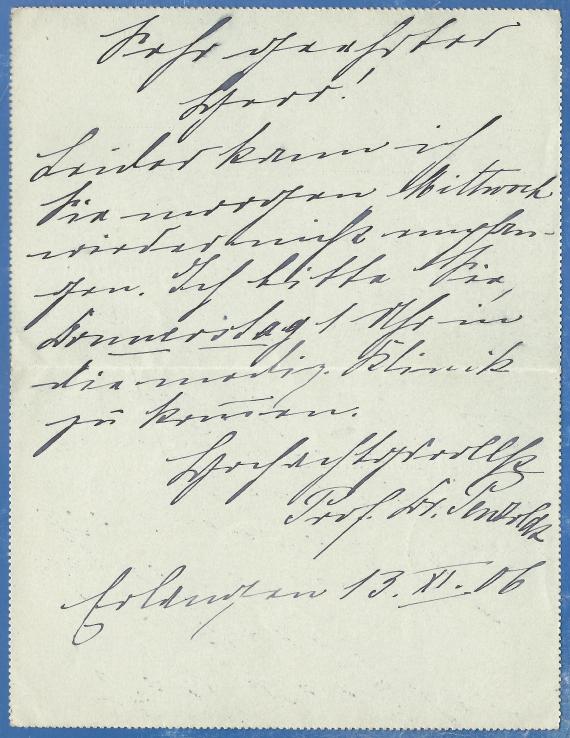 Sehr geehrter
Herr!
Leider kann ich
Sie morgen Mittwoch
wieder nicht empfan-
gen. Ich bitte Sie,
Donnerstag 1 Uhr in
die mediz. Klinik
zu kom̅en.
Hochachtungsvollst
Prof. Dr. Penzoldt
Erlangen 13. XI. 06